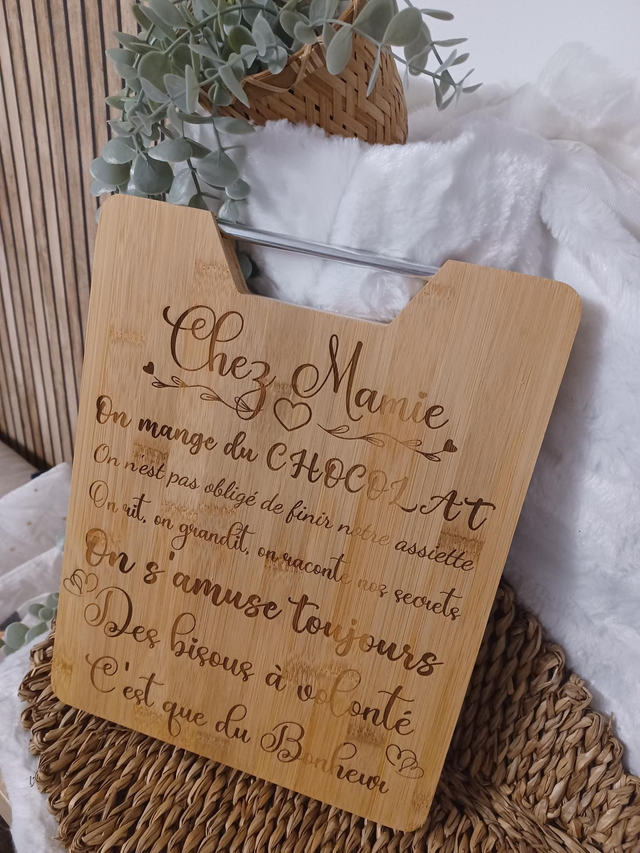 Chez Mamie
On mange du CHOCOLAT
On n'est pas obligé de finir notre assiette
On rit, on grandit, on raconte nos secrets
On s'amuse toujours
Des bisous à volonté
C'est que du Bonheur